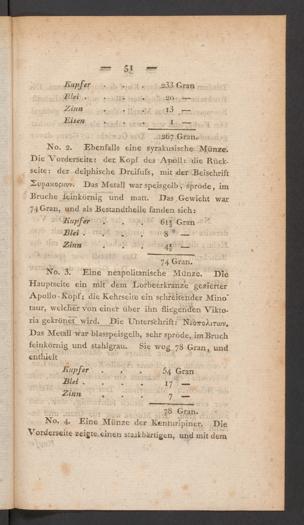 — 51 —
Kupfer . . . . 233 Gran
Blei . . . . . 20 —
Zinn . . . . 13 —
Eisen . . . . 1 —
267 Gran.
No. 2. Ebenfalls eine syrakusische Münze.
Die Vorderseite: der Kopf des Apoll: die Rück-
seite: der delphische Dreifuſs, mit der Beischrift
Συρακοριον. Das Metall war speisgelb, spröde, im
Bruche feinkörnig und matt. Das Gewicht war
74 Gran, und als Bestandtheile fanden sich:
Kupfer . . . . 61½ Gran
Blei . . . . . 8 —
Zinn . . . . 4½ —
74 Gran.
No. 3. Eine neapolitanische Münze. Die
Hauptseite ein mit dem Lorbeerkranze gezierter
Apollo-Kopf; die Kehrseite ein schreitender Mino-
taur, welcher von einer über ihn fliegenden Vikto-
ria gekrönet wird. Die Unterschrift: Νεοπολιτων.
Das Metall war blasspeisgelb, sehr spröde, im Bruch
feinkörnig und stahlgrau. Sie wog 78 Gran, und
enthielt
Kupfer . . . . 54 Gran
Blei . . . . . 17 —
Zinn . . . . 7 —
78 Gran.
No. 4. Eine Münze der Kenturipiner. Die
Vorderseite zeigte einen starkbärtigen, und mit dem